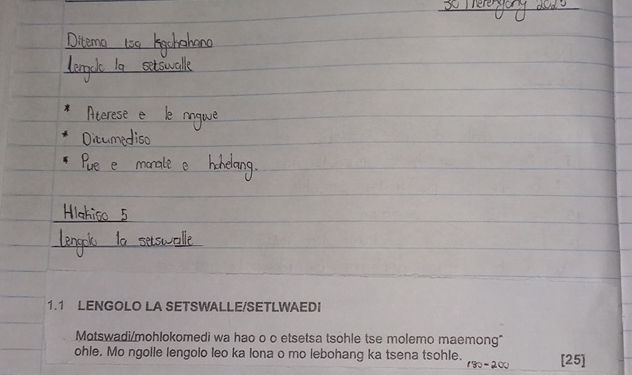 30 Pherekgong 2025
Ditema tsa kgokahano
lengolo la setswalle
* Aterese e le nngwe
* Ditumediso
* Pue e monate e hohelang.
Hlakiso 5
lengolo la setswalle
1.1 LENGOLO LA SETSWALLE/SETLWAEDI
Motswadi/mohlokomedi wa hao o o etsetsa tsohle tse molemo maemong
ohle. Mo ngolle lengolo leo ka lona o mo lebohang ka tsena tsohle.
180-200 [25]